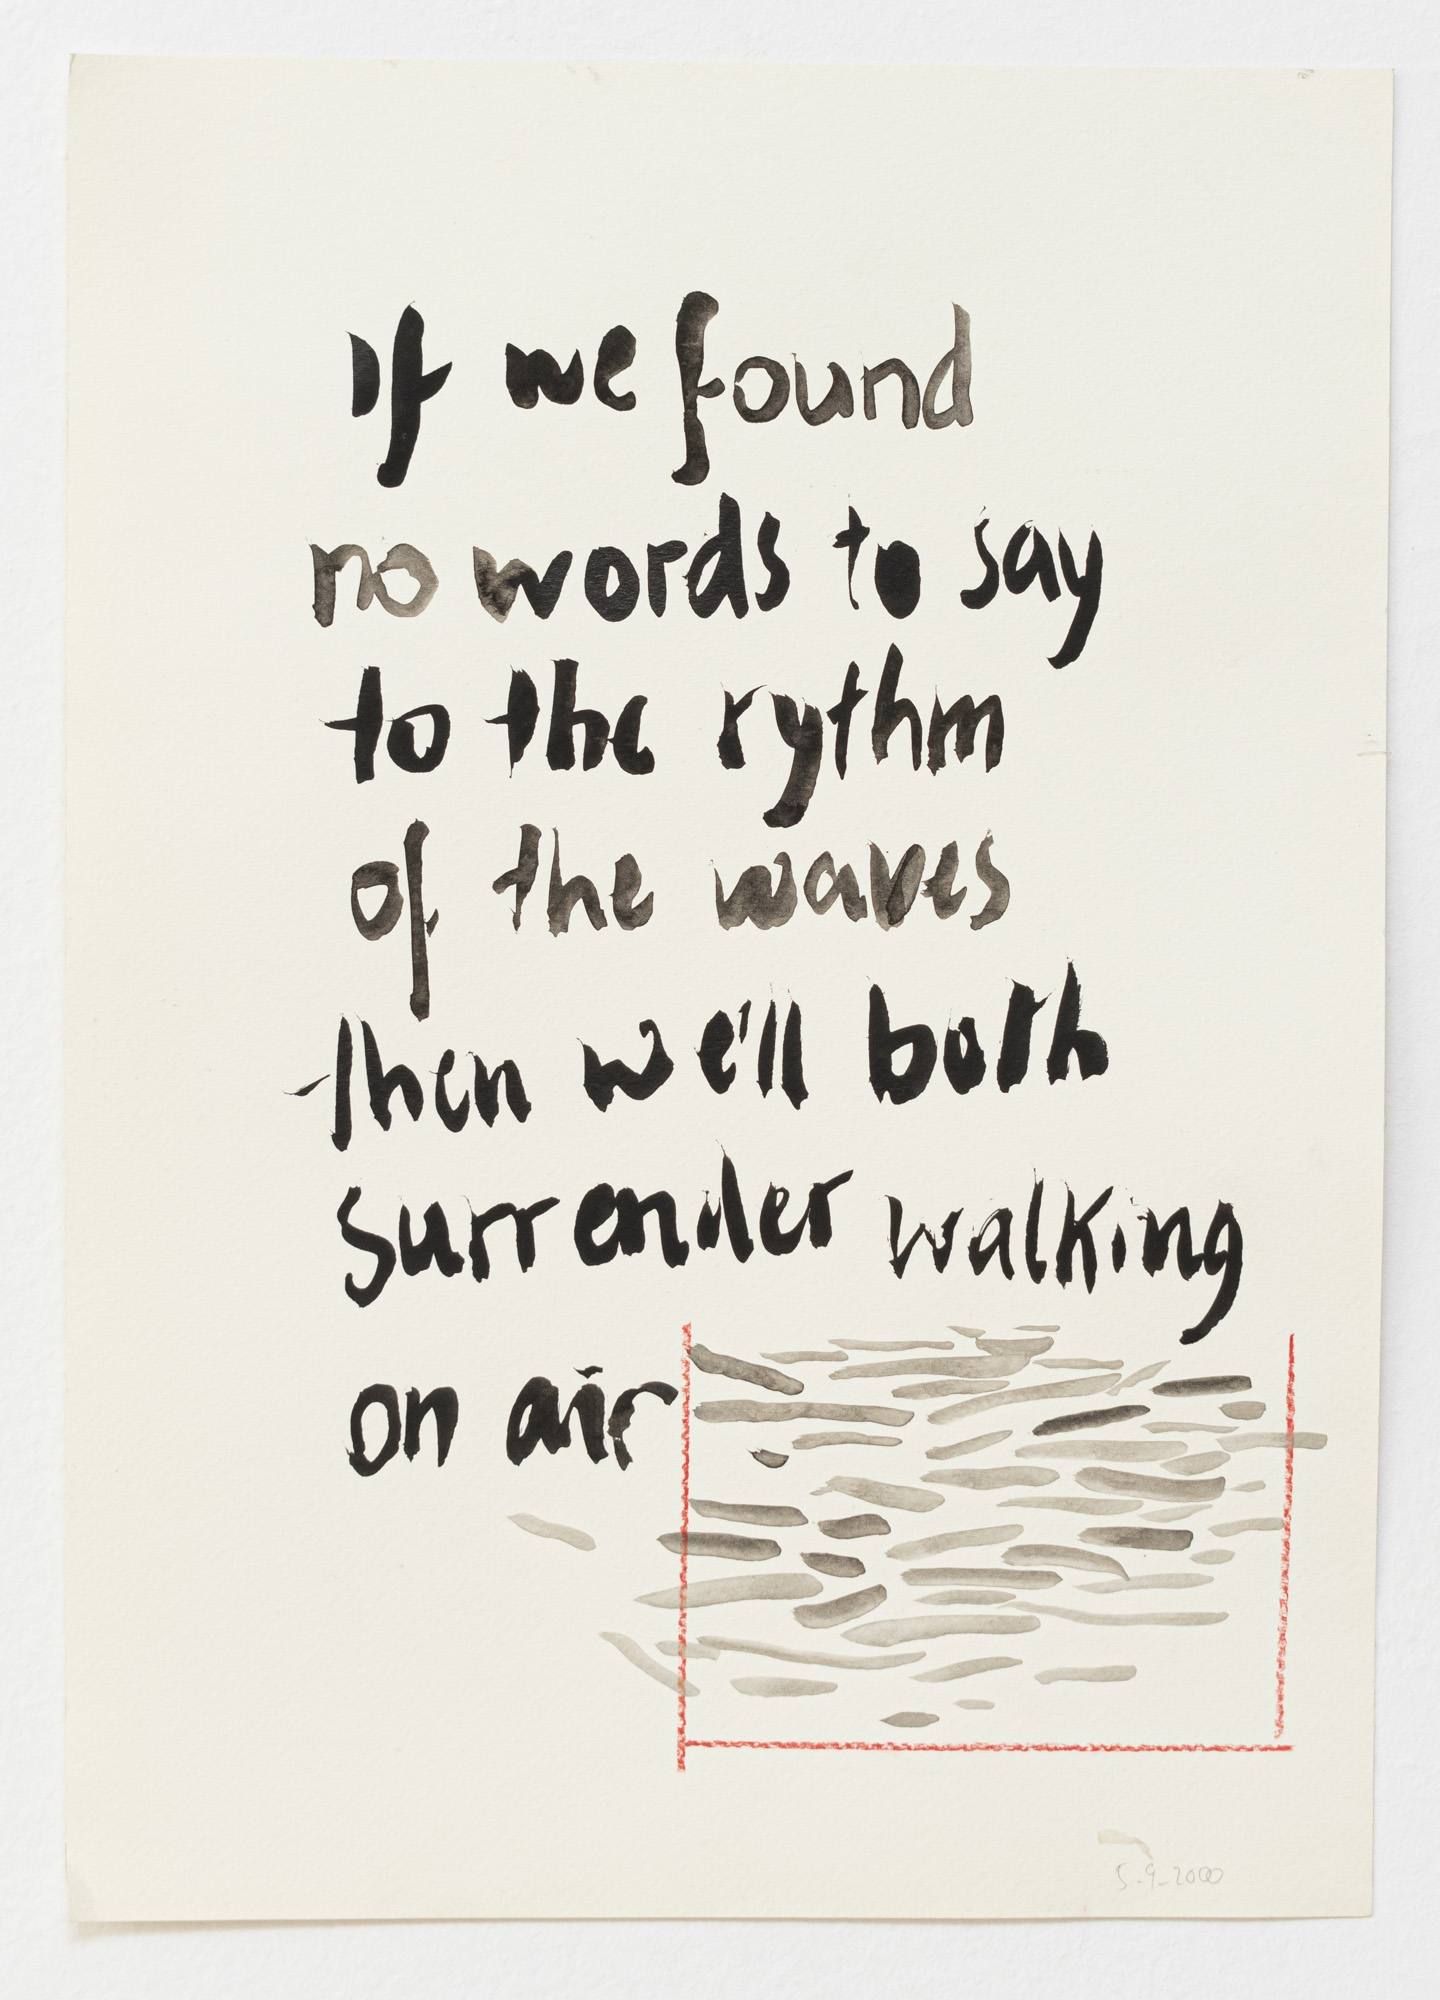 If we found
no words to say
to the rythm
of the waves
then we'll both
surrender walking
on air
5-9-2000